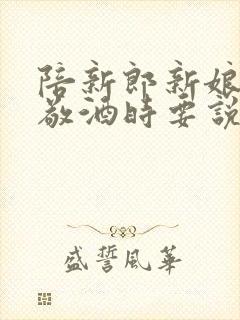 陪新郎新娘
敬酒時要說
盛誓風華